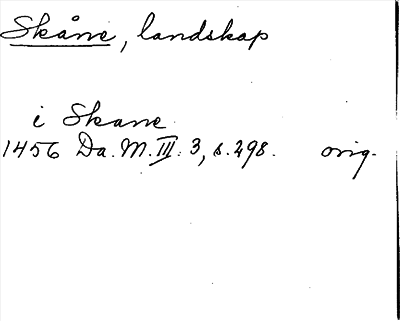 Skåne, landskap
i Skane
1456 Da. M. III. 3, s. 298. orig.